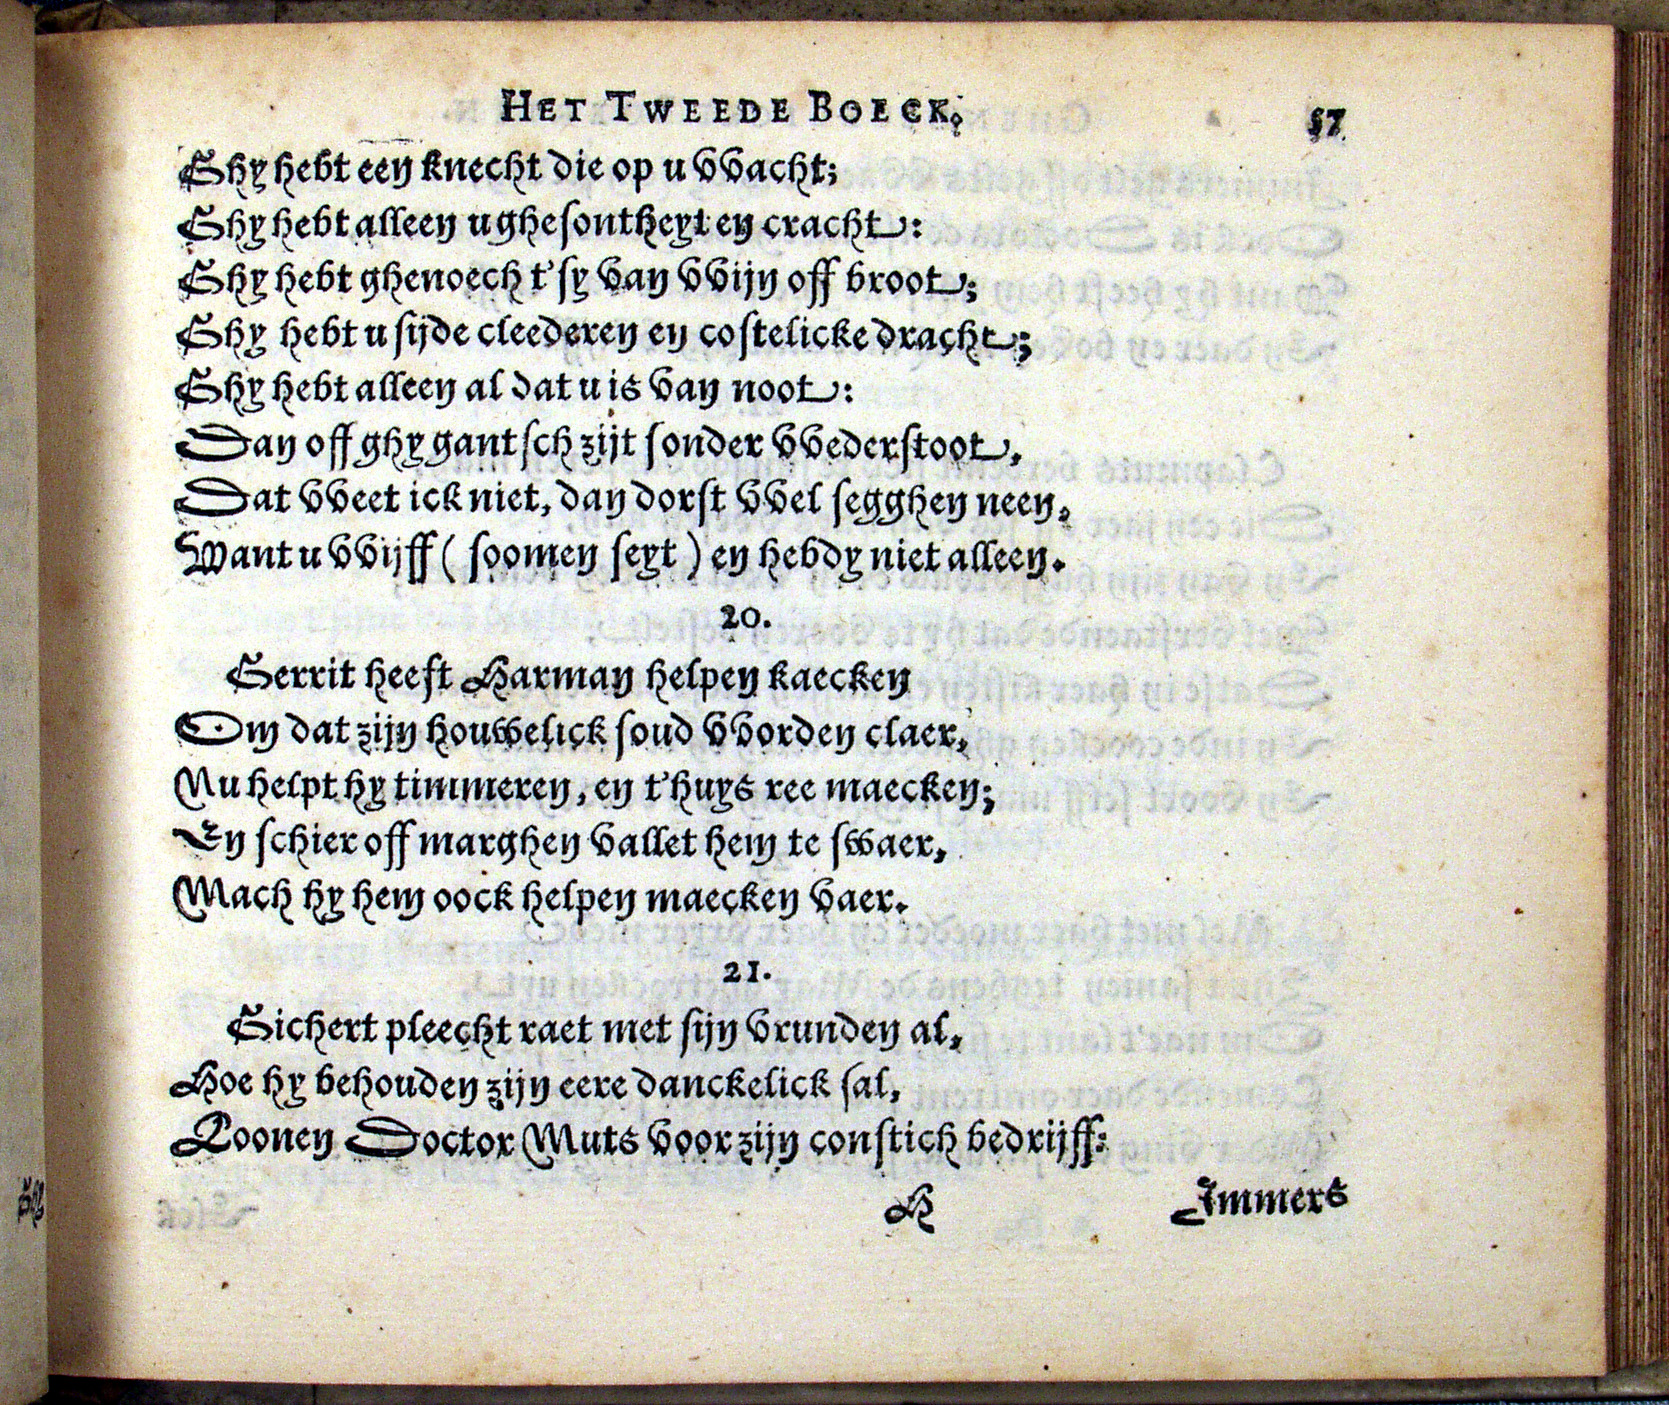 HET TWEEDE BOECK. 57
Ghy hebt een knecht die op u vvacht;
Ghy hebt alleen u ghesontheyt en cracht:
Ghy hebt ghenoech t'sy van vvijn off broot;
Ghy hebt u sijde cleederen en costelicke dracht;
Ghy hebt alleen al dat u is van noot:
Dan off ghy gantsch zijt sonder vvederstoot,
Dat vveet ick niet, dan dorst vvel segghen neen,
Want u vvijff ( soomen seyt ) en hebdy niet alleen.
20.
Gerrit heeft Harman helpen kaecken
Om dat zijn houwelick soud vvorden claer,
Nu helpt hy timmeren, en t'huys ree maecken;
En schier off marghen vallet hem te swaer,
Mach hy hem oock helpen maecken vaer.
21.
Sichert pleecht raet met sijn vrunden al,
Hoe hy behouden zijn eere danckelick sal,
Loonen Doctor Muts voor zijn constich bedrijff:
H Immers